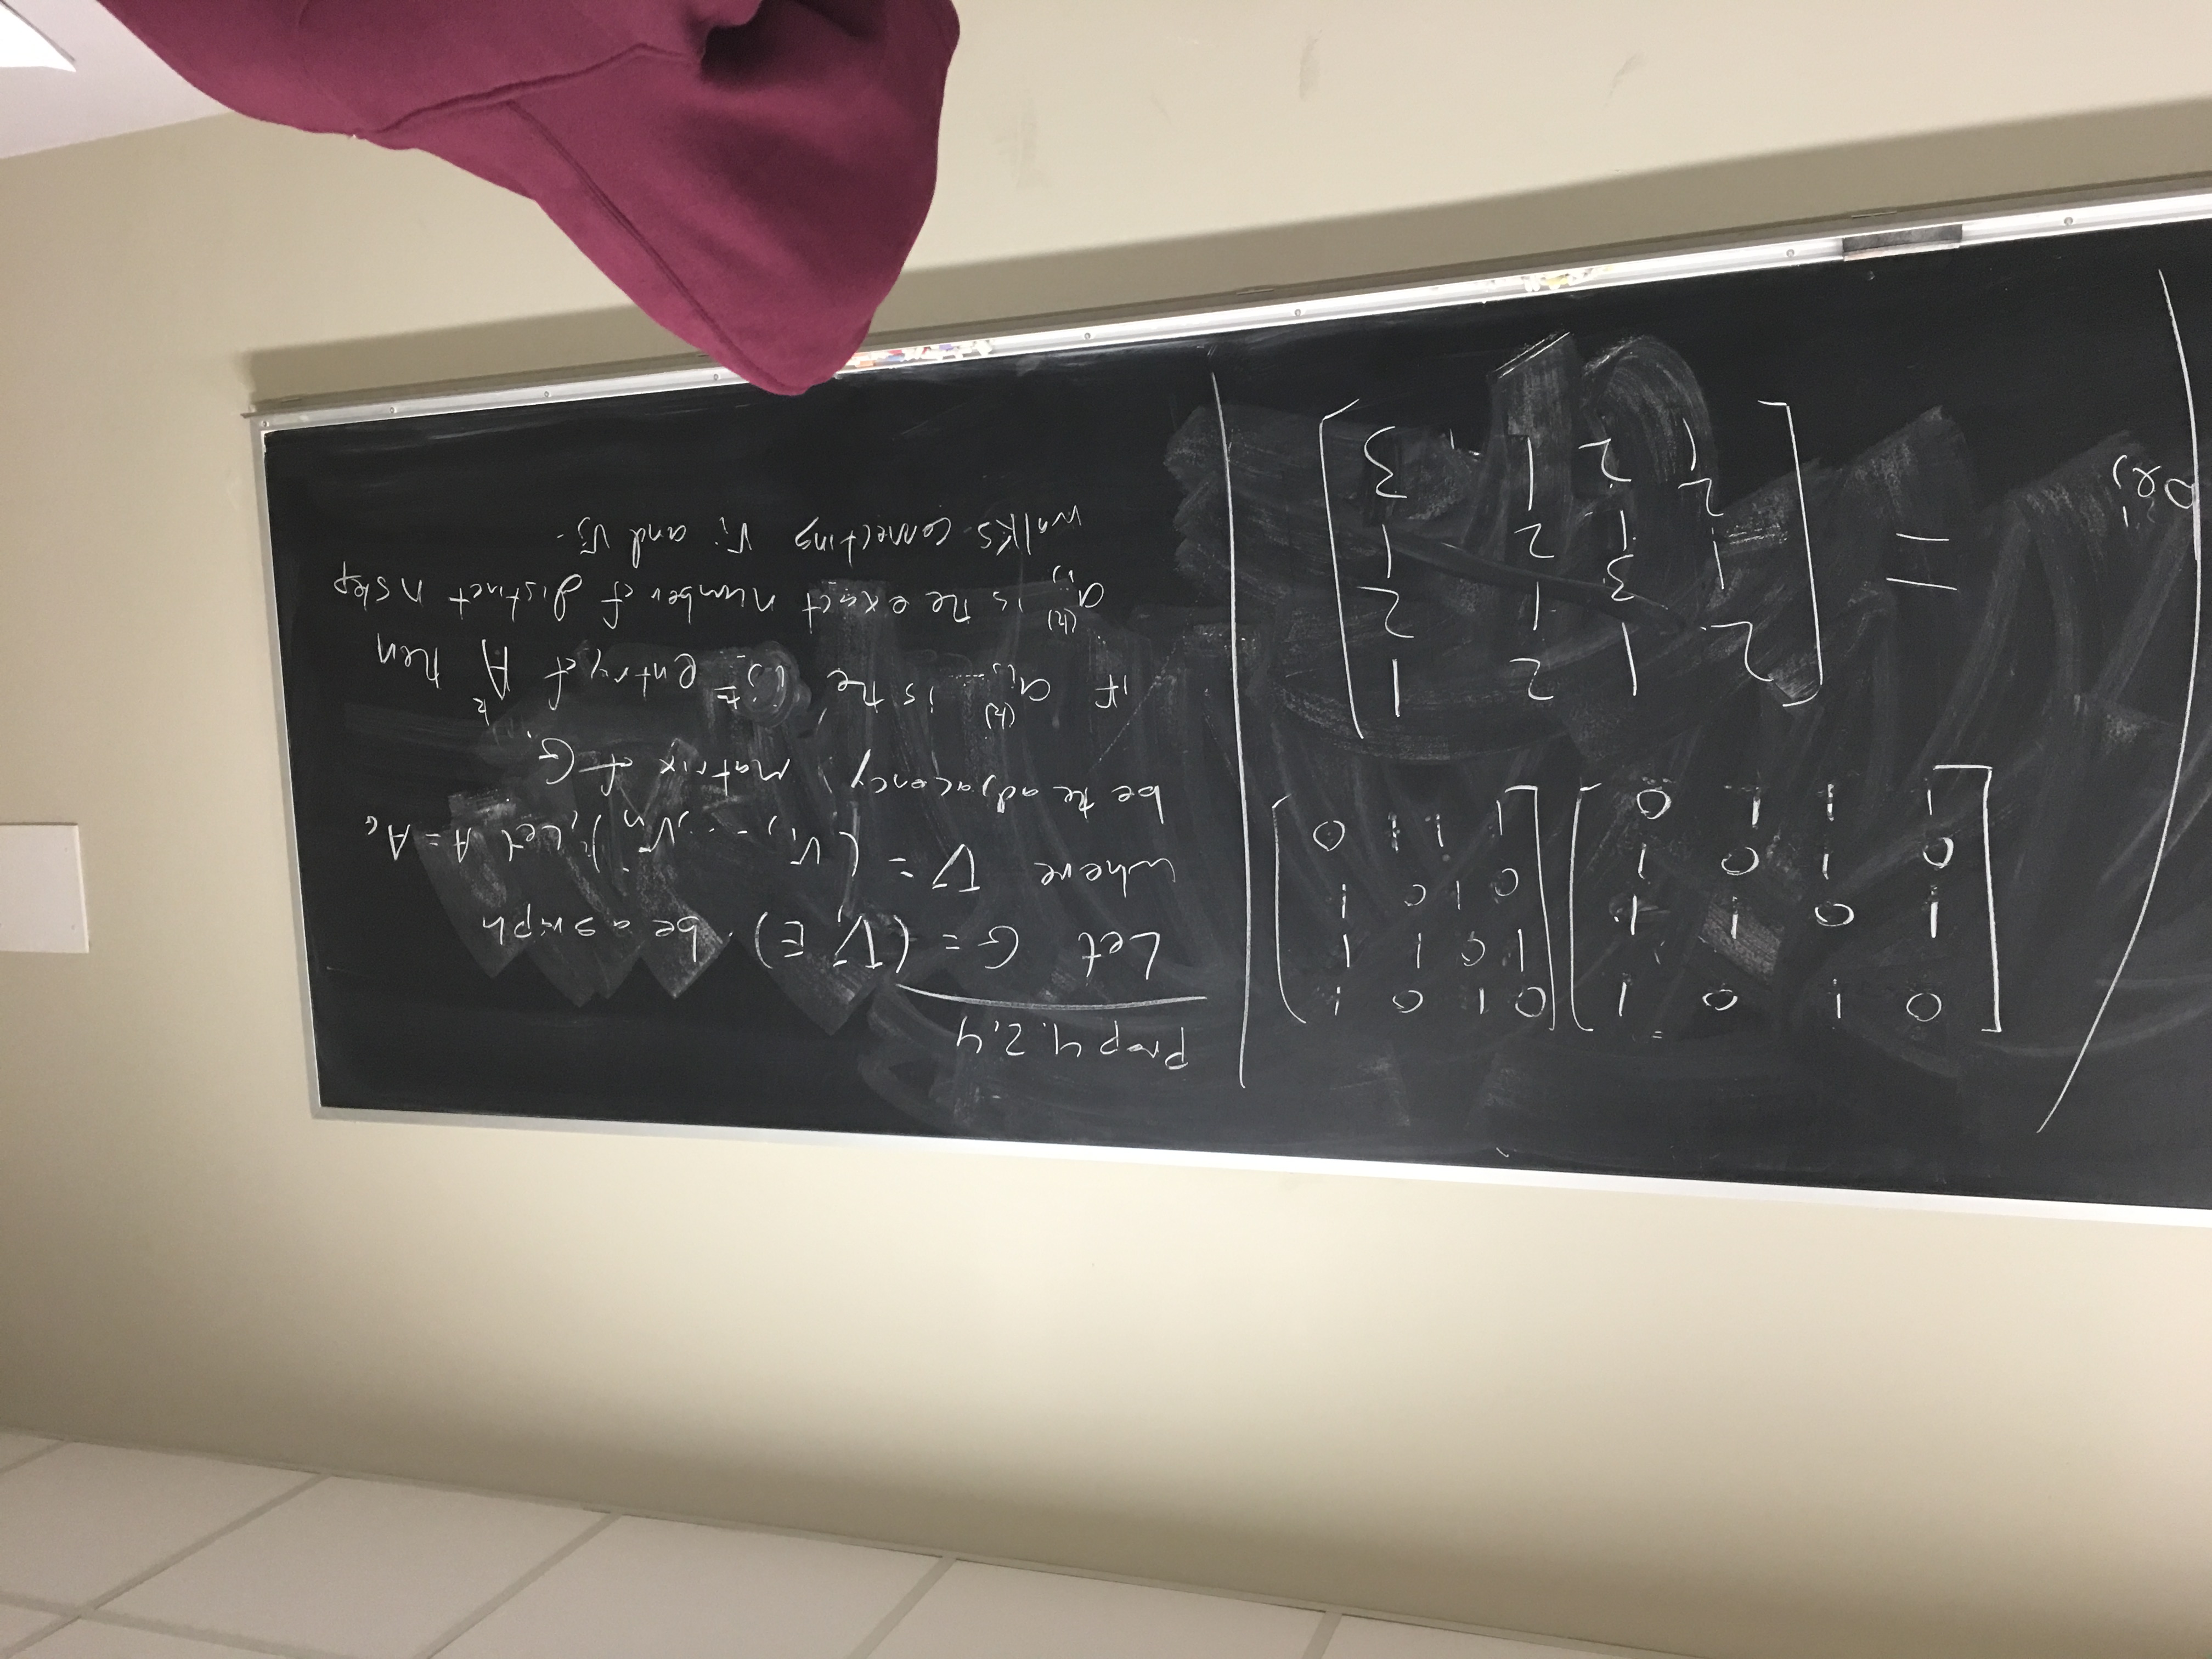 0 1 0 1   0 1 0 1
1 0 1 1   1 0 1 1
0 1 0 1   0 1 0 1
1 1 1 0   1 1 1 0
=
2 1 2 1
1 3 1 2
2 1 2 1
1 2 1 3
Prop 4.2.4
Let G = (V, E) be a graph
where V = (v₁, ..., vₙ), Let A = A_G
be the adjacency matrix of G.
if a_ij^(k) is the ij^th entry of A^k then
a_ij^(k) is the exact number of distinct n step
walks connecting v_i and v_j.